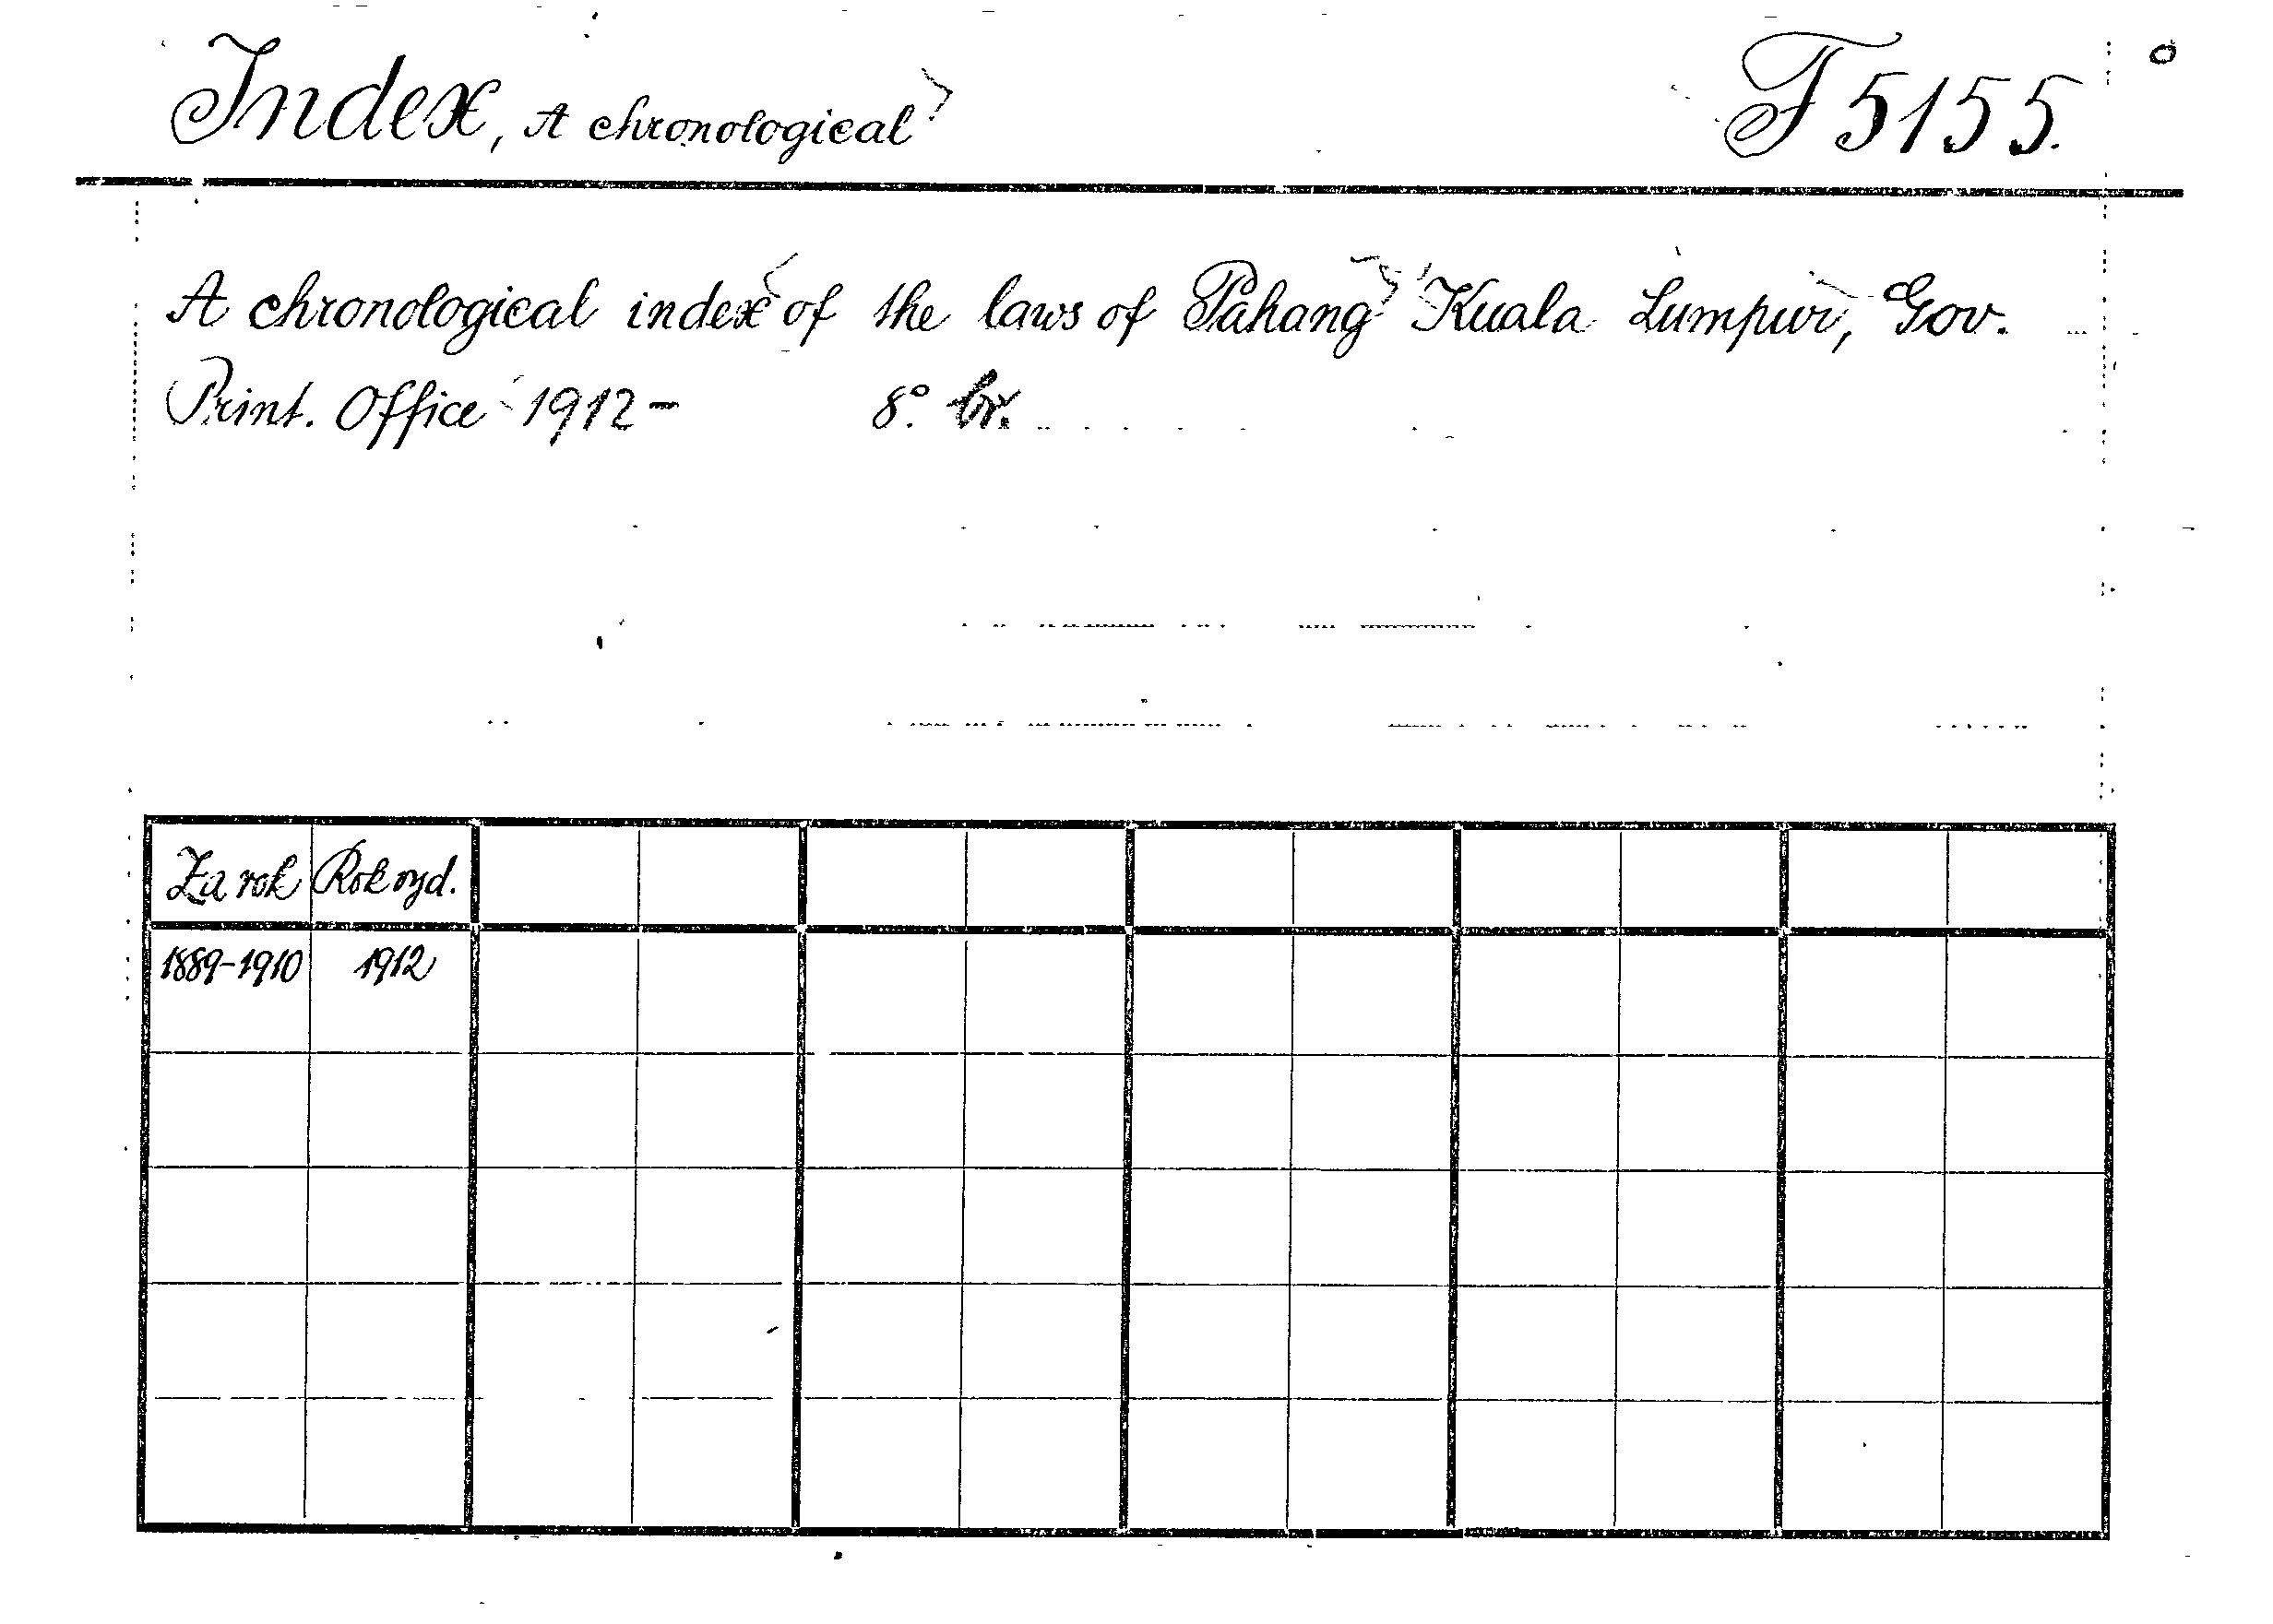 Index, A chronological F 5155.
A chronological index of the laws of Pahang Kuala Lumpur, Gov.
Print. Office 1912- 8° br.
Za rok Rok vyd.
1889-1910 1912